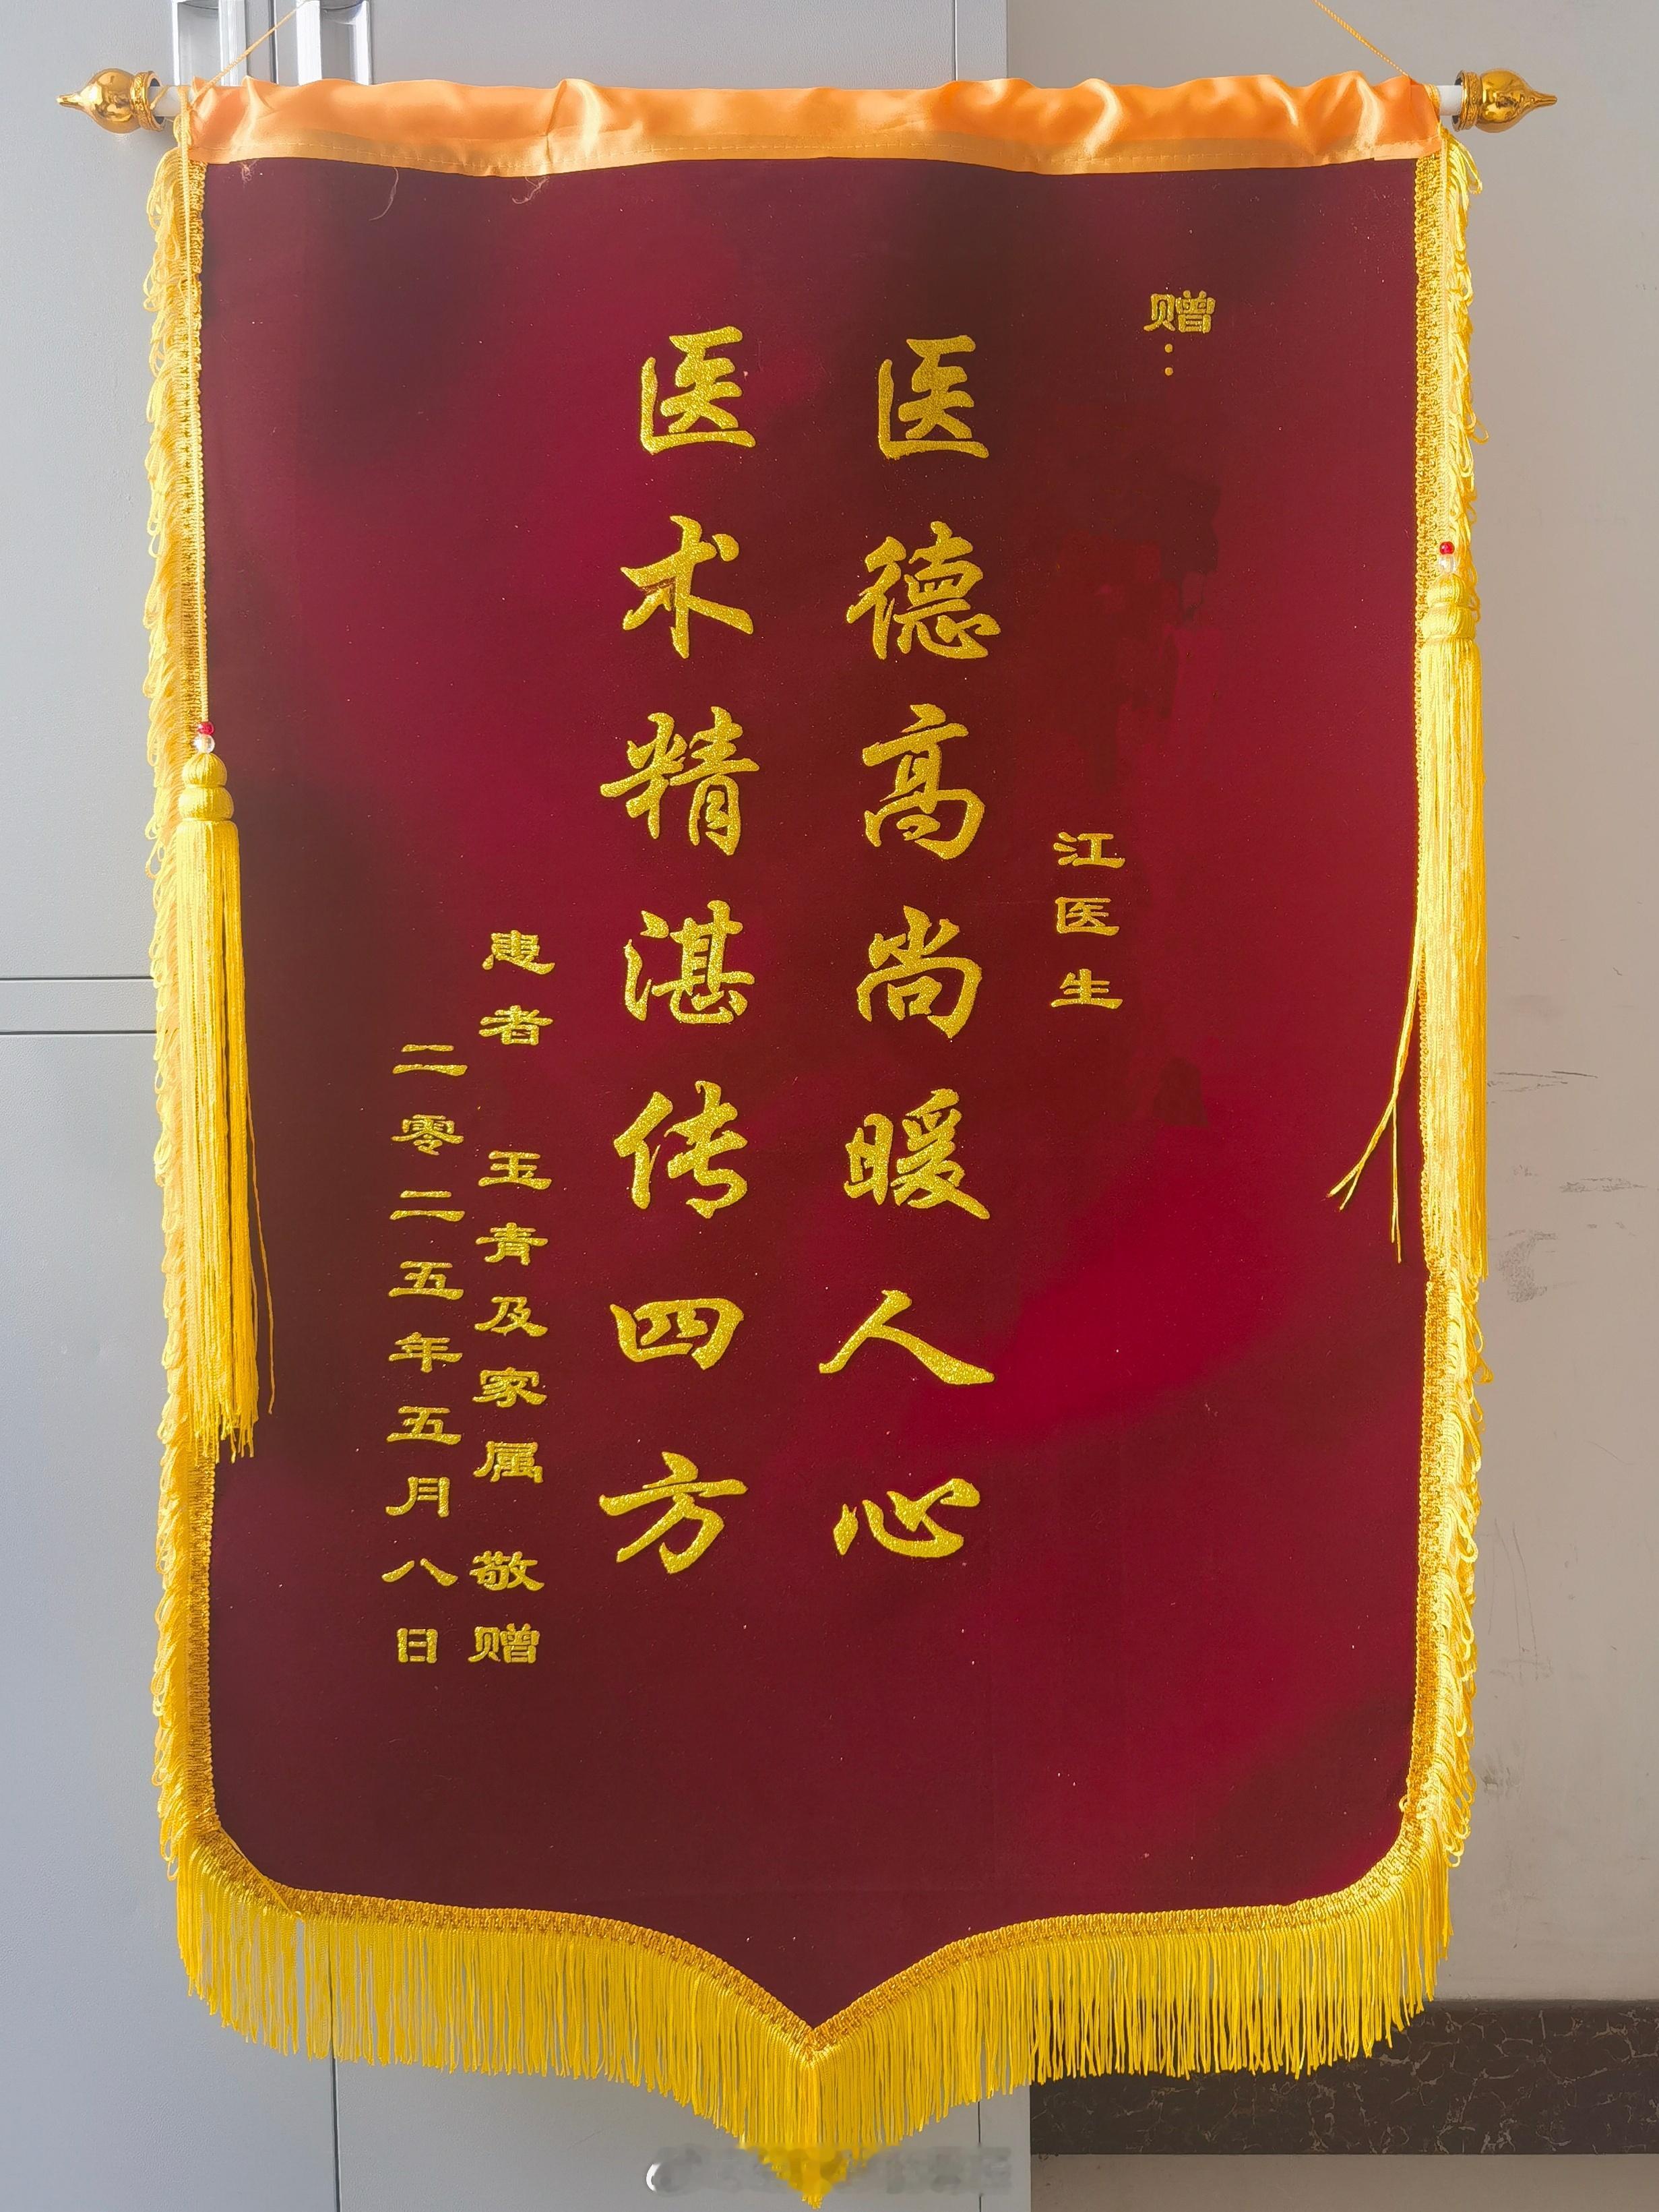 赠：
江医生
医德高尚暖人心
医术精湛传四方
患者 玉青及家属 敬赠
二零二五年五月八日